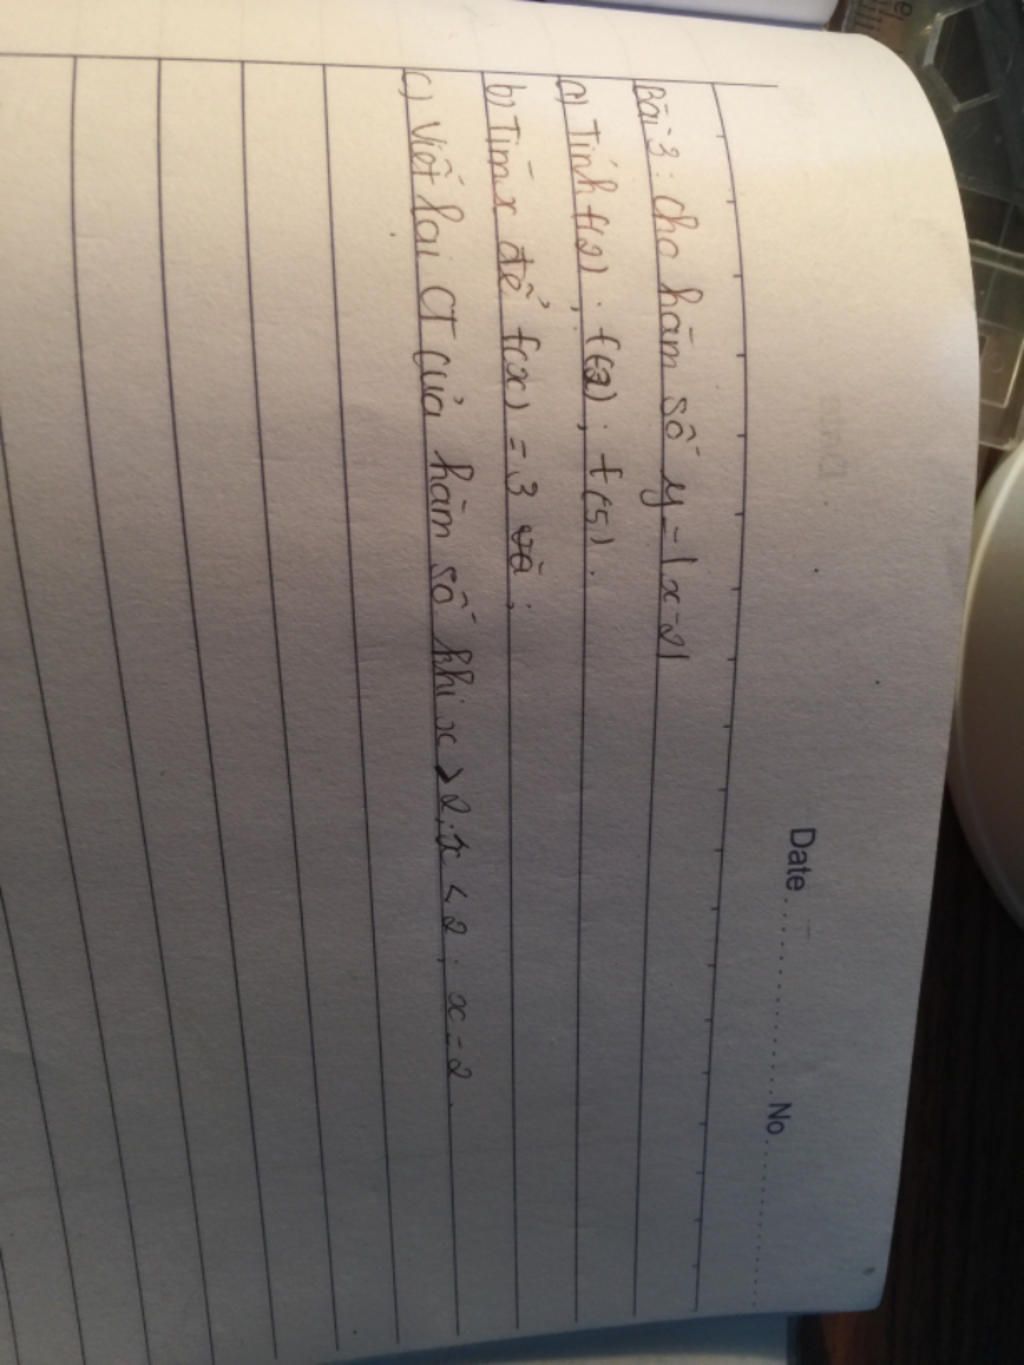 Date No
Bài 3: cho hàm số y = |x-2|
a) Tính f(2); f(-2); f(5).
b) Tìm x để f(x) = 3
c) Viết lại CT của hàm số khi x > 2; x < 2; x = 2.